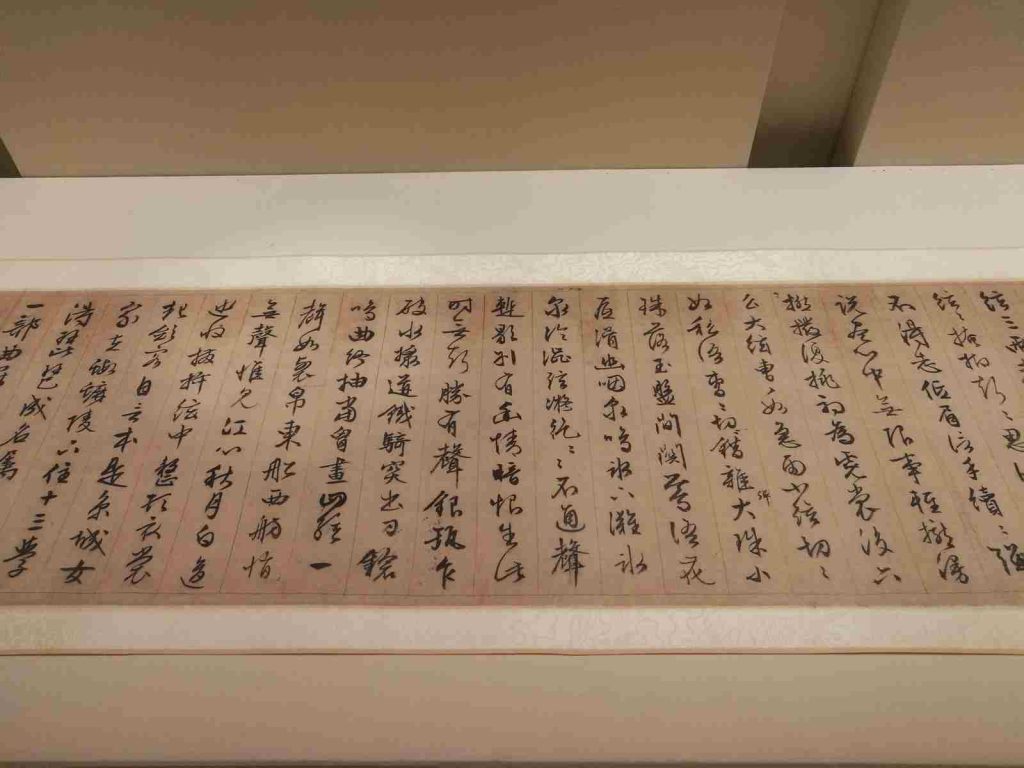 絃三兩
絃〻掩抑〻〻思
不得志低眉信手續〻彈
說盡心中無限事輕攏慢
撚撥復挑初為霓裳後六
么大絃曹〻如急雨小絃切〻
如私語曹〻切〻錯雜彈大珠小
珠落玉盤間關鶯語花
底滑幽咽泉鳴冰下灘水
泉冷澀絃凝絕〻〻不通聲
暫歇別有幽情暗恨生此
時無聲勝有聲銀瓶乍
破水漿迸鐵騎突出刀鎗
鳴曲終抽當胸畫四絃一
聲如裂帛東船西舫悄
無聲惟見江心秋月白
收撥插絃中整頓衣裳
起斂容自言本是京城女
家在蝦蟆陵下住十三學
得琵琶成名屬
一部曲罷